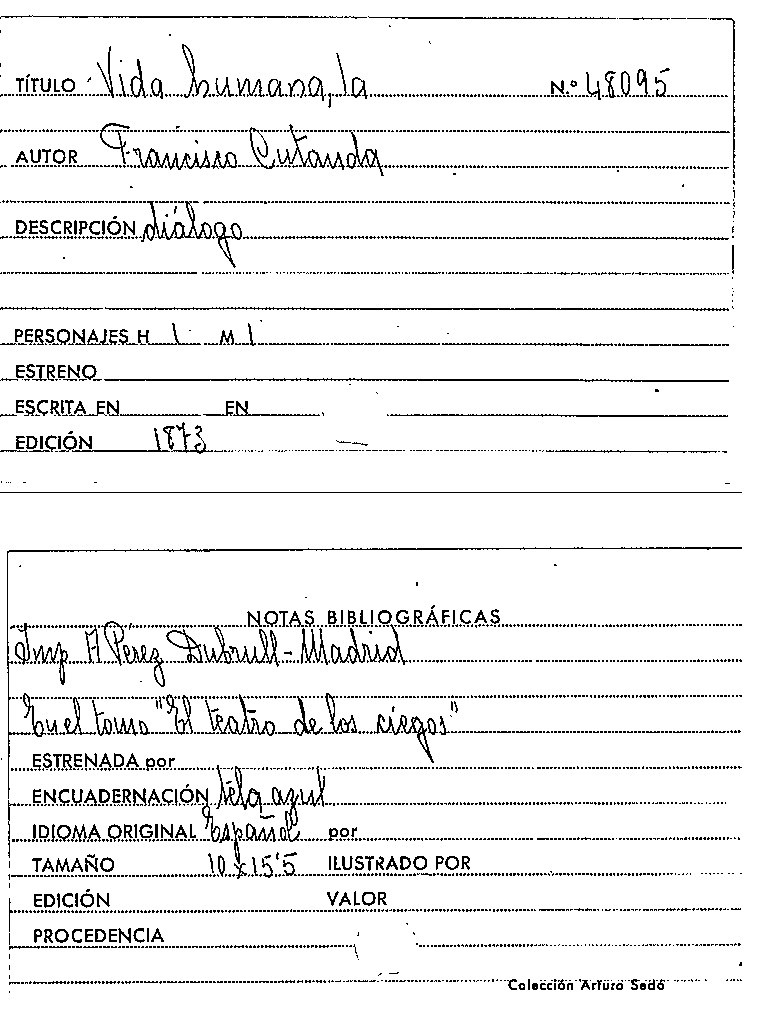 TÍTULO Vida humana, la N.º 48095
AUTOR Francisco Cutanda
DESCRIPCIÓN diálogo
PERSONAJES H 1 M 1
ESTRENO
ESCRITA EN EN
EDICIÓN 1873
NOTAS BIBLIOGRÁFICAS
Imp A Pérez Dubrull - Madrid
En el tomo "El teatro de los ciegos"
ESTRENADA por
ENCUADERNACIÓN tela azul
IDIOMA ORIGINAL Español por
TAMAÑO 10 x 15'5 ILUSTRADO POR
EDICIÓN VALOR
PROCEDENCIA
Colección Arturo Sedó